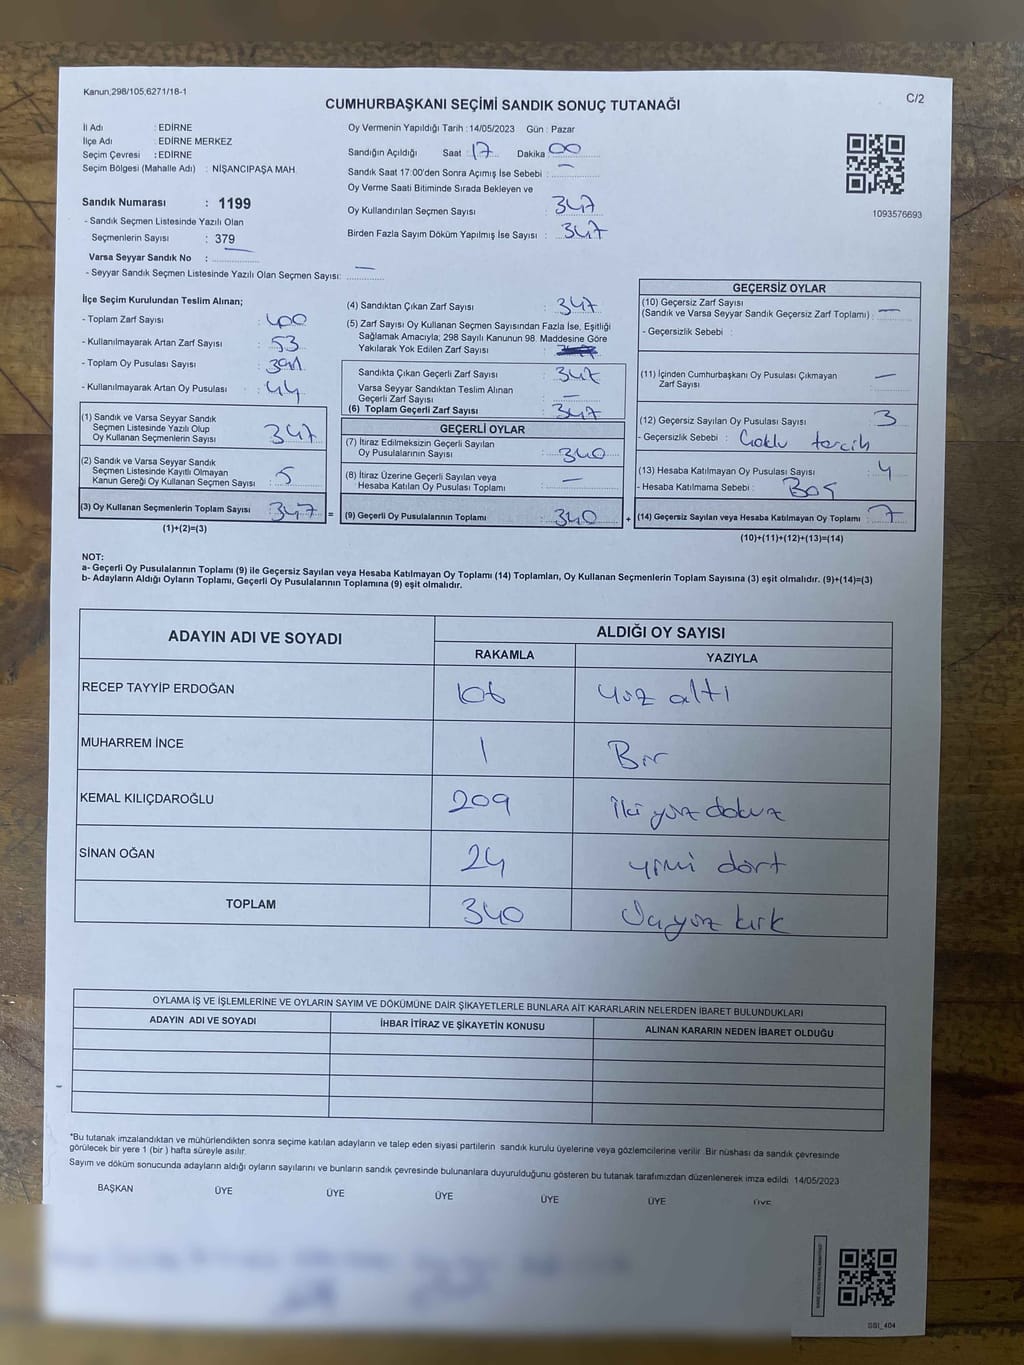 Kanun;298/105,6271/18-1
C/2
CUMHURBAŞKANI SEÇİMİ SANDIK SONUÇ TUTANAĞI
İl Adı : EDİRNE
İlçe Adı : EDİRNE MERKEZ
Seçim Çevresi : EDİRNE
Seçim Bölgesi (Mahalle Adı) : NİŞANCIPAŞA MAH.
Sandık Numarası : 1199
- Sandık Seçmen Listesinde Yazılı Olan
Seçmenlerin Sayısı : 379
Varsa Seyyar Sandık No : —
- Seyyar Sandık Seçmen Listesinde Yazılı Olan Seçmen Sayısı: —
Oy Vermenin Yapıldığı Tarih : 14/05/2023 Gün : Pazar
Sandığın Açıldığı Saat : 17 Dakika : 00
Sandık Saat 17:00'den Sonra Açımış İse Sebebi : —
Oy Verme Saati Bitiminde Sırada Bekleyen ve
Oy Kullandırılan Seçmen Sayısı : 347
Birden Fazla Sayım Döküm Yapılmış İse Sayısı : 347
1093576693
İlçe Seçim Kurulundan Teslim Alınan;
- Toplam Zarf Sayısı : 400
- Kullanılmayarak Artan Zarf Sayısı : 53
- Toplam Oy Pusulası Sayısı : 391
- Kullanılmayarak Artan Oy Pusulası : 44
(1) Sandık ve Varsa Seyyar Sandık
Seçmen Listesinde Yazılı Olup
Oy Kullanan Seçmenlerin Sayısı : 347
(2) Sandık ve Varsa Seyyar Sandık
Seçmen Listesinde Kayıtlı Olmayan
Kanun Gereği Oy Kullanan Seçmen Sayısı : 5
(3) Oy Kullanan Seçmenlerin Toplam Sayısı : 347 =
(1)+(2)=(3)
(4) Sandıktan Çıkan Zarf Sayısı : 347
(5) Zarf Sayısı Oy Kullanan Seçmen Sayısından Fazla İse, Eşitliği
Sağlamak Amacıyla; 298 Sayılı Kanunun 98. Maddesine Göre
Yakılarak Yok Edilen Zarf Sayısı :
Sandıkta Çıkan Geçerli Zarf Sayısı : 347
Varsa Seyyar Sandıktan Teslim Alınan
Geçerli Zarf Sayısı : —
(6) Toplam Geçerli Zarf Sayısı : 347
GEÇERLİ OYLAR
(7) İtiraz Edilmeksizin Geçerli Sayılan
Oy Pusulalarının Sayısı : 340
(8) İtiraz Üzerine Geçerli Sayılan veya
Hesaba Katılan Oy Pusulası Toplamı : —
(9) Geçerli Oy Pusulalarının Toplamı : 340 +
GEÇERSİZ OYLAR
(10) Geçersiz Zarf Sayısı
(Sandık ve Varsa Seyyar Sandık Geçersiz Zarf Toplamı) : —
- Geçersizlik Sebebi :
(11) İçinden Cumhurbaşkanı Oy Pusulası Çıkmayan
Zarf Sayısı : —
(12) Geçersiz Sayılan Oy Pusulası Sayısı : 3
- Geçersizlik Sebebi : Çoklu tercih
(13) Hesaba Katılmayan Oy Pusulası Sayısı : 4
- Hesaba Katılmama Sebebi : Boş
(14) Geçersiz Sayılan veya Hesaba Katılmayan Oy Toplamı : 7
(10)+(11)+(12)+(13)=(14)
NOT:
a- Geçerli Oy Pusulalarının Toplamı (9) ile Geçersiz Sayılan veya Hesaba Katılmayan Oy Toplamı (14) Toplamları, Oy Kullanan Seçmenlerin Toplam Sayısına (3) eşit olmalıdır. (9)+(14)=(3)
b- Adayların Aldığı Oyların Toplamı, Geçerli Oy Pusulalarının Toplamına (9) eşit olmalıdır.
ADAYIN ADI VE SOYADI
ALDIĞI OY SAYISI
RAKAMLA YAZIYLA
RECEP TAYYİP ERDOĞAN 106 yüz altı
MUHARREM İNCE 1 Bir
KEMAL KILIÇDAROĞLU 209 İki yüz dokuz
SİNAN OĞAN 24 yirmi dört
TOPLAM 340 Üçyüz kırk
OYLAMA İŞ VE İŞLEMLERİNE VE OYLARIN SAYIM VE DÖKÜMÜNE DAİR ŞİKAYETLERLE BUNLARA AİT KARARLARIN NELERDEN İBARET BULUNDUKLARI
ADAYIN ADI VE SOYADI İHBAR İTİRAZ VE ŞİKAYETİN KONUSU ALINAN KARARIN NEDEN İBARET OLDUĞU
*Bu tutanak imzalandıktan ve mühürlendikten sonra seçime katılan adayların ve talep eden siyasi partilerin sandık kurulu üyelerine veya gözlemcilerine verilir. Bir nüshası da sandık çevresinde
görülecek bir yere 1 (bir ) hafta süreyle asılır.
Sayım ve döküm sonucunda adayların aldığı oyların sayılarını ve bunların sandık çevresinde bulunanlara duyurulduğunu gösteren bu tutanak tarafımızdan düzenlenerek imza edildi 14/05/2023
BAŞKAN ÜYE ÜYE ÜYE ÜYE ÜYE ÜYE
SSI_404